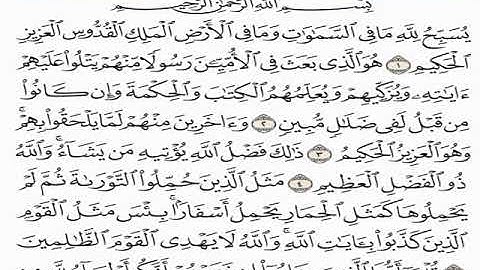 بِسْمِ اللَّهِ الرَّحْمَٰنِ الرَّحِيمِ
يُسَبِّحُ لِلَّهِ مَا فِي السَّمَاوَاتِ وَمَا فِي الْأَرْضِ الْمَلِكِ الْقُدُّوسِ الْعَزِيزِ
الْحَكِيمِ ١ هُوَ الَّذِي بَعَثَ فِي الْأُمِّيِّينَ رَسُولًا مِنْهُمْ يَتْلُوا عَلَيْهِمْ
ءَايَاتِهِ وَيُزَكِّيهِمْ وَيُعَلِّمُهُمُ الْكِتَابَ وَالْحِكْمَةَ وَإِنْ كَانُوا
مِنْ قَبْلُ لَفِي ضَلَالٍ مُبِينٍ ٢ وَءَاخَرِينَ مِنْهُمْ لَمَّا يَلْحَقُوا بِهِمْ
وَهُوَ الْعَزِيزُ الْحَكِيمُ ٣ ذَٰلِكَ فَضْلُ اللَّهِ يُؤْتِيهِ مَنْ يَشَاءُ وَاللَّهُ
ذُو الْفَضْلِ الْعَظِيمِ ٤ مَثَلُ الَّذِينَ حُمِّلُوا التَّوْرَاةَ ثُمَّ لَمْ
يَحْمِلُوهَا كَمَثَلِ الْحِمَارِ يَحْمِلُ أَسْفَارًا بِئْسَ مَثَلُ الْقَوْمِ
الَّذِينَ كَذَّبُوا بِآيَاتِ اللَّهِ وَاللَّهُ لَا يَهْدِي الْقَوْمَ الظَّالِمِينَ